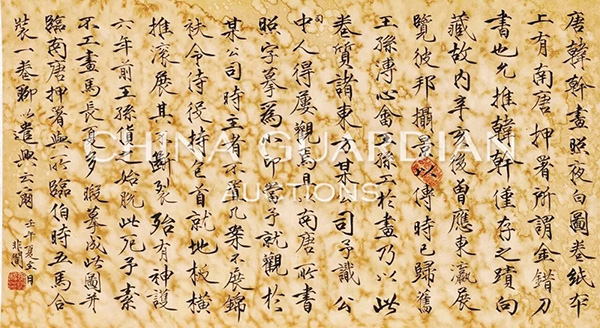 唐韓幹畫照夜白圖卷紙本
上有南唐押署所謂金錯刀
書也允推韓幹僅存之蹟向
藏故內辛亥後曾應東瀛展
覽彼邦攝景以傳時已歸舊
王孫溥心畬王孫工於畫乃以此
卷質諸東方某公司予識公
司中人得屢觀焉且南唐所書
照字摹為小印嘗予就觀於
某公司時主者不置几案不展錦
袱令侍役持卷首就地板橫
推滾展其不斷裂殆有神護
六年前王孫貨之始脫此厄予素
不工畫馬長夏多暇摹成此圖并
臨南唐押署與所臨伯時五馬合
裝一卷聊以遣興云爾
壬午夏六月
非闇
CHINA GUARDIAN
AUCTIONS